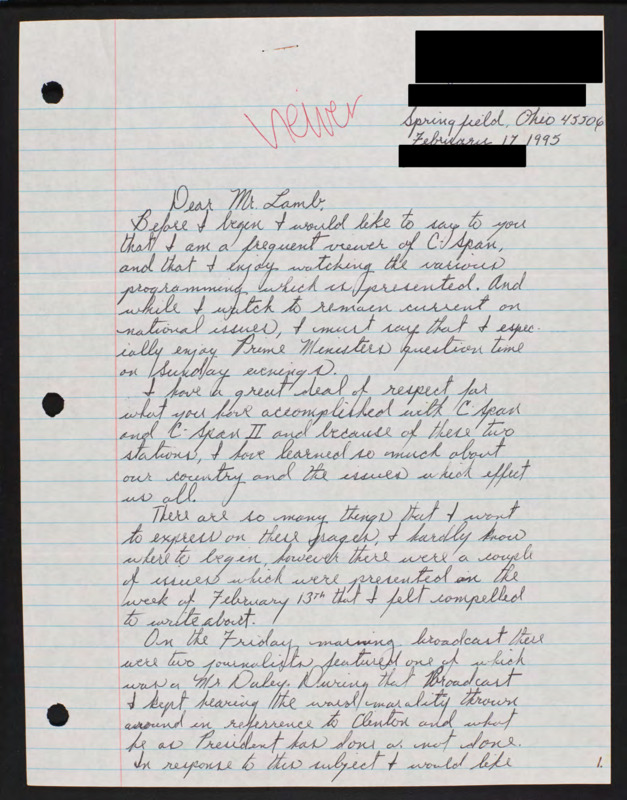 viewer
Springfield, Ohio 45506
February 17 1995
Dear Mr. Lamb,
Before I begin I would like to say to you
that I am a frequent viewer of C-Span,
and that I enjoy watching the various
programming which is presented. And
while I watch to remain current on
national issues, I must say that I espec-
ially enjoy Prime Ministers question time
on Sunday evenings.
I have a great deal of respect for
what you have accomplished with C-Span
and C-Span II and because of these two
stations, I have learned so much about
our country and the issues which effect
us all.
There are so many things that I want
to express on these pages, I hardly know
where to begin, however there were a couple
of issues which were presented on the
week of February 13th that I felt compelled
to write about.
On the Friday morning broadcast there
were two journalists featured one of which
was a Mr Daley. During that Broadcast
I kept hearing the word morality thrown
around in referrence to Clenton and what
he as President has done or not done.
In response to this subject I would like
1.